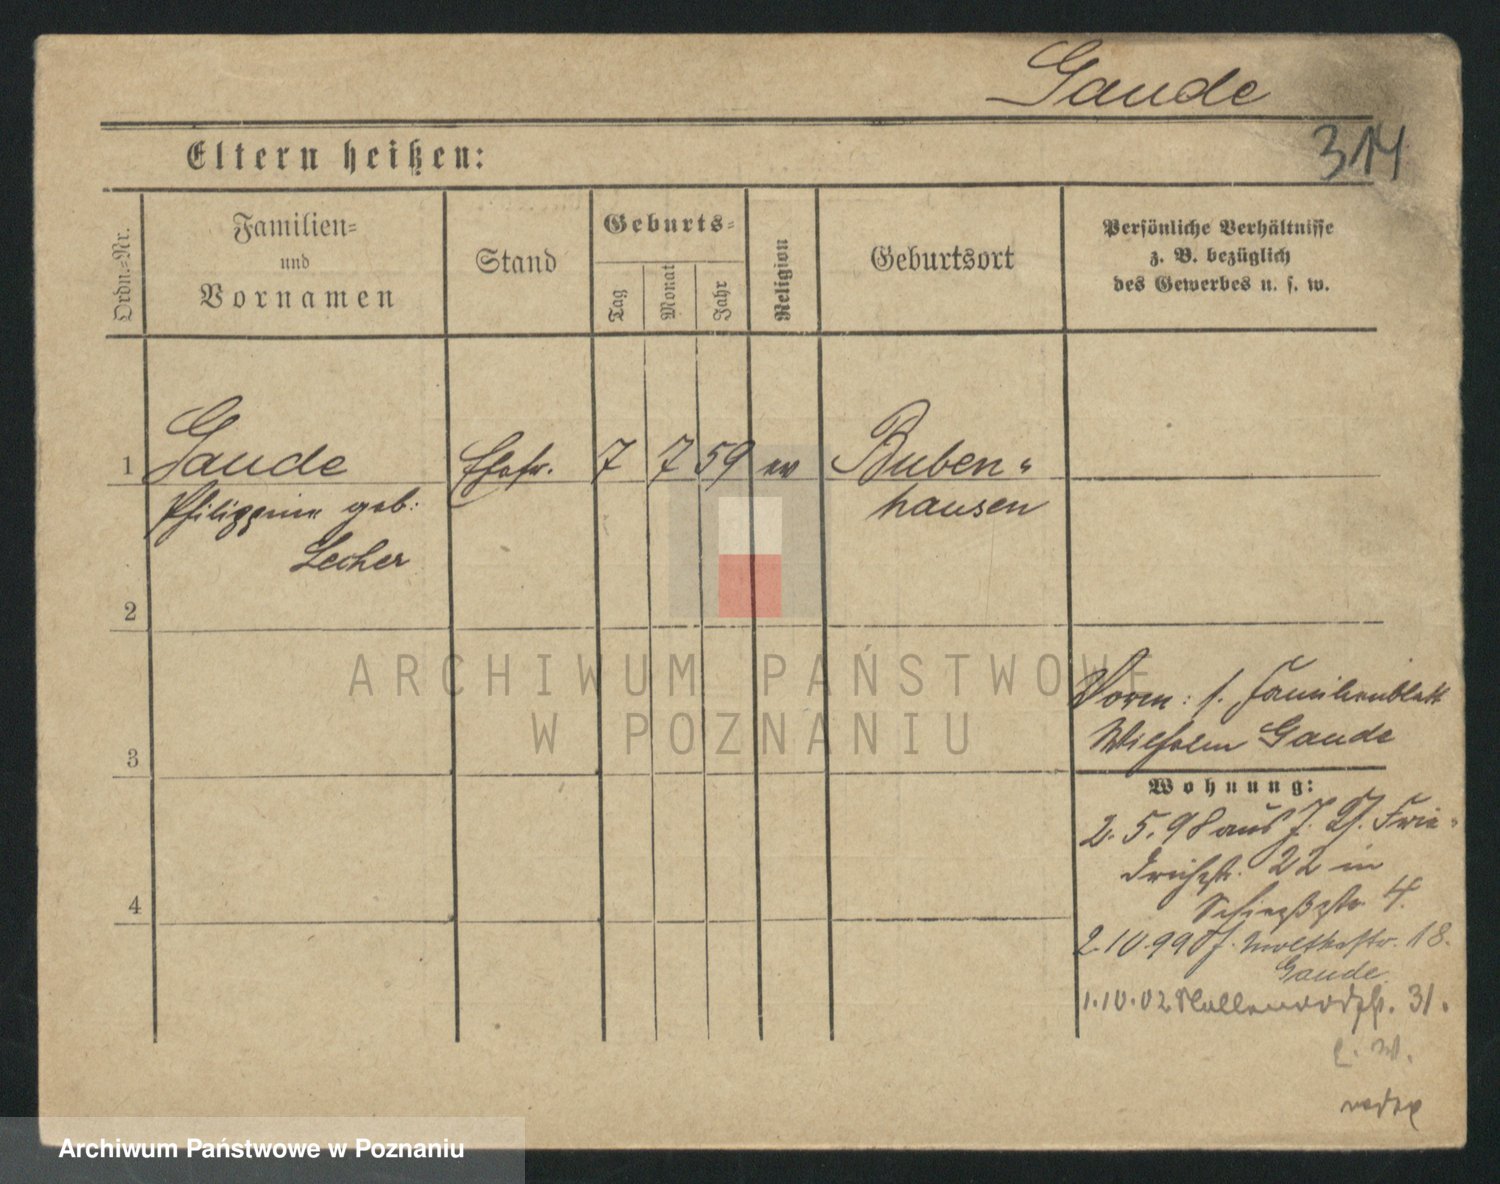 Gaude
314
Eltern heißen:
Ordn.-Nr.
Familien-
und
Vornamen
Stand
Geburts-
Tag
Monat
Jahr
Religion
Geburtsort
Persönliche Verhältnisse
z. B. bezüglich
des Gewerbes u. s. w.
1 Gaude Ehefr. 7 7 59 ev Buben-
Philippine geb: hausen
Lecher
2
3
4
Vorm: s. Familienblatt
Wilhelm Gaude
Wohnung:
2.5.98 aus J. Frie-
drichstr. 22 in
Schießstr 4.
2.10.99 J. Moltkestr. 18.
Gaude
1.10.02 31.
ARCHIWUM PAŃSTWOWE
W POZNANIU
Archiwum Państwowe w Poznaniu